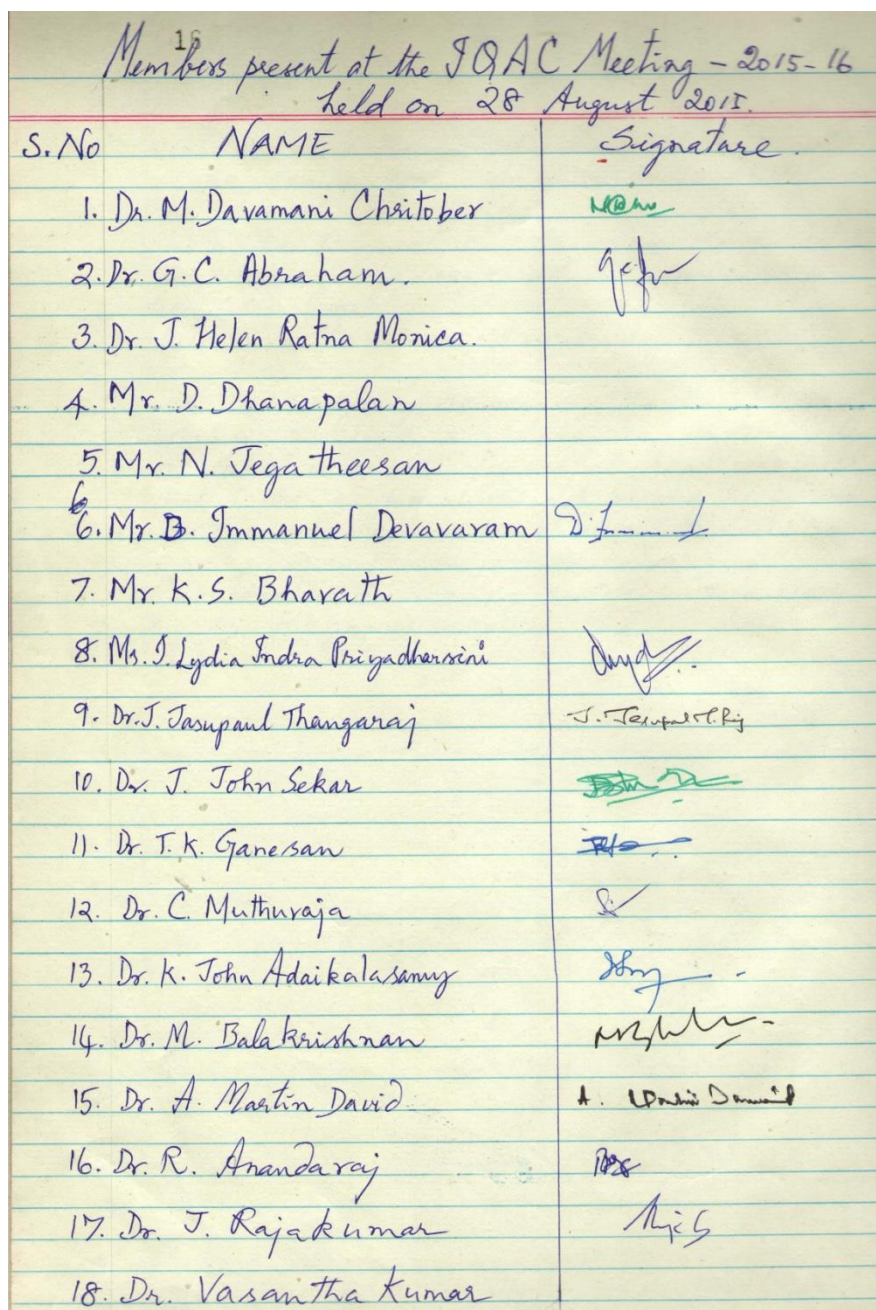 16
Members present at the IQAC Meeting - 2015-16
held on 28 August 2015.
S. No NAME Signature.
1. Dr. M. Davamani Chritober
2. Dr. G. C. Abraham.
3. Dr. J. Helen Ratna Monica.
4. Mr. D. Dhanapalan
5. Mr. N. Jegatheesan
6
6. Mr. D. Immanuel Devavaram
7. Mr. K. S. Bharath
8. Ms. I. Lydia Indra Priyadharsini
9. Dr. J. Jasupaul Thangaraj
10. Dr. J. John Sekar
11. Dr. T. K. Ganesan
12. Dr. C. Muthuraja
13. Dr. K. John Adaikalasamy
14. Dr. M. Balakrishnan
15. Dr. A. Martin David A.
16. Dr. R. Anandaraj
17. Dr. J. Rajakumar
18. Dr. Vasantha Kumar